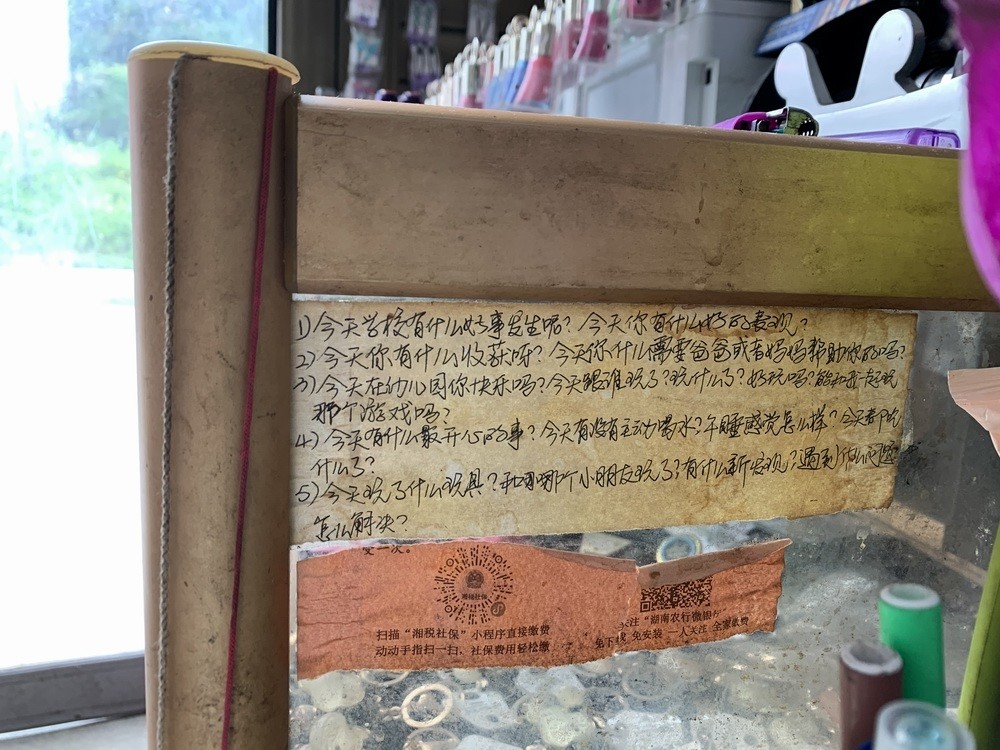 1）今天学校有什么好事发生呢？今天你有什么好的表现？
2）今天你有什么收获呀？今天你什么需要爸爸或者妈妈帮助你的吗？
3）今天在幼儿园你快乐吗？今天跟谁玩了？玩什么了？好玩吗？能和我一起玩
那个游戏吗？
4）今天有什么最开心的事？今天有没有主动喝水？午睡感觉怎么样？今天都吃
什么了？
5）今天玩了什么玩具？和哪个小朋友玩了？有什么新发现？遇到什么问题
怎么解决？
变一次。
湘税社保
扫描“湘税社保”小程序直接缴费
动动手指扫一扫，社保费用轻松缴
关注“湖南农行微银行
免下载 免安装 一人关注 全家缴费